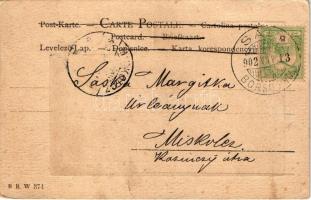 Post-Karte. — CARTE POSTALE. — Cartolina postale
Postcard. — Briefkaart.
Levelező-Lap. — Dopisnice. — Karta korespondencyjna
902
13
BORSOD
Sáska Margitka
Urleánynak
Miskolcz
Kazinczy utca
B R. W 374